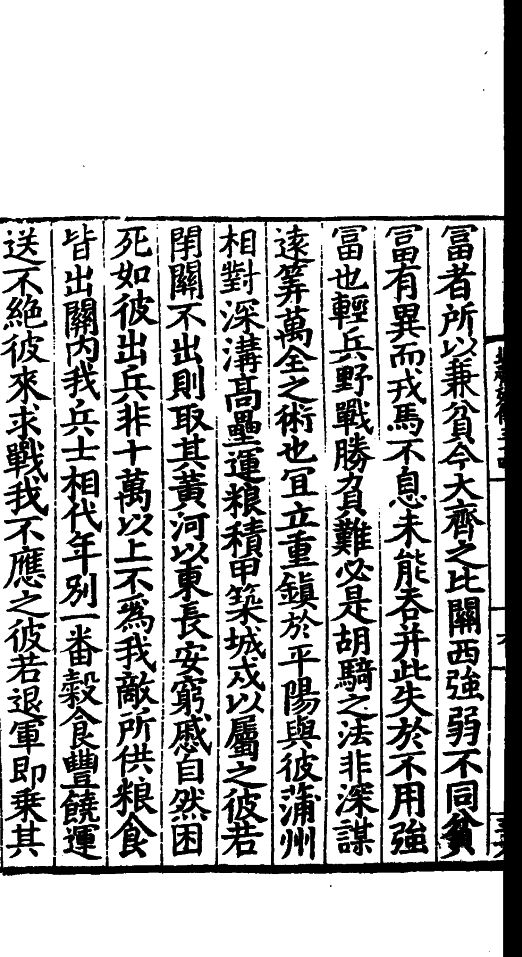 富者所以兼貧今大齊之比關西強弱不同貧
富有異而戎馬不息未能吞并此失於不用強
富也輕兵野戰勝負難必是胡騎之法非深謀
遠筭萬全之術也冝立重鎮於平陽與彼蒲州
相對深溝髙壘運粮積甲築城戍以屬之彼若
閇關不出則取其黃河以東長安窮慼自然困
死如彼出兵非十萬以上不爲我敵所供粮食
皆出關内我兵士相代年別一番穀食豐饒運
送不絶彼來求戰我不應之彼若退軍即乗其